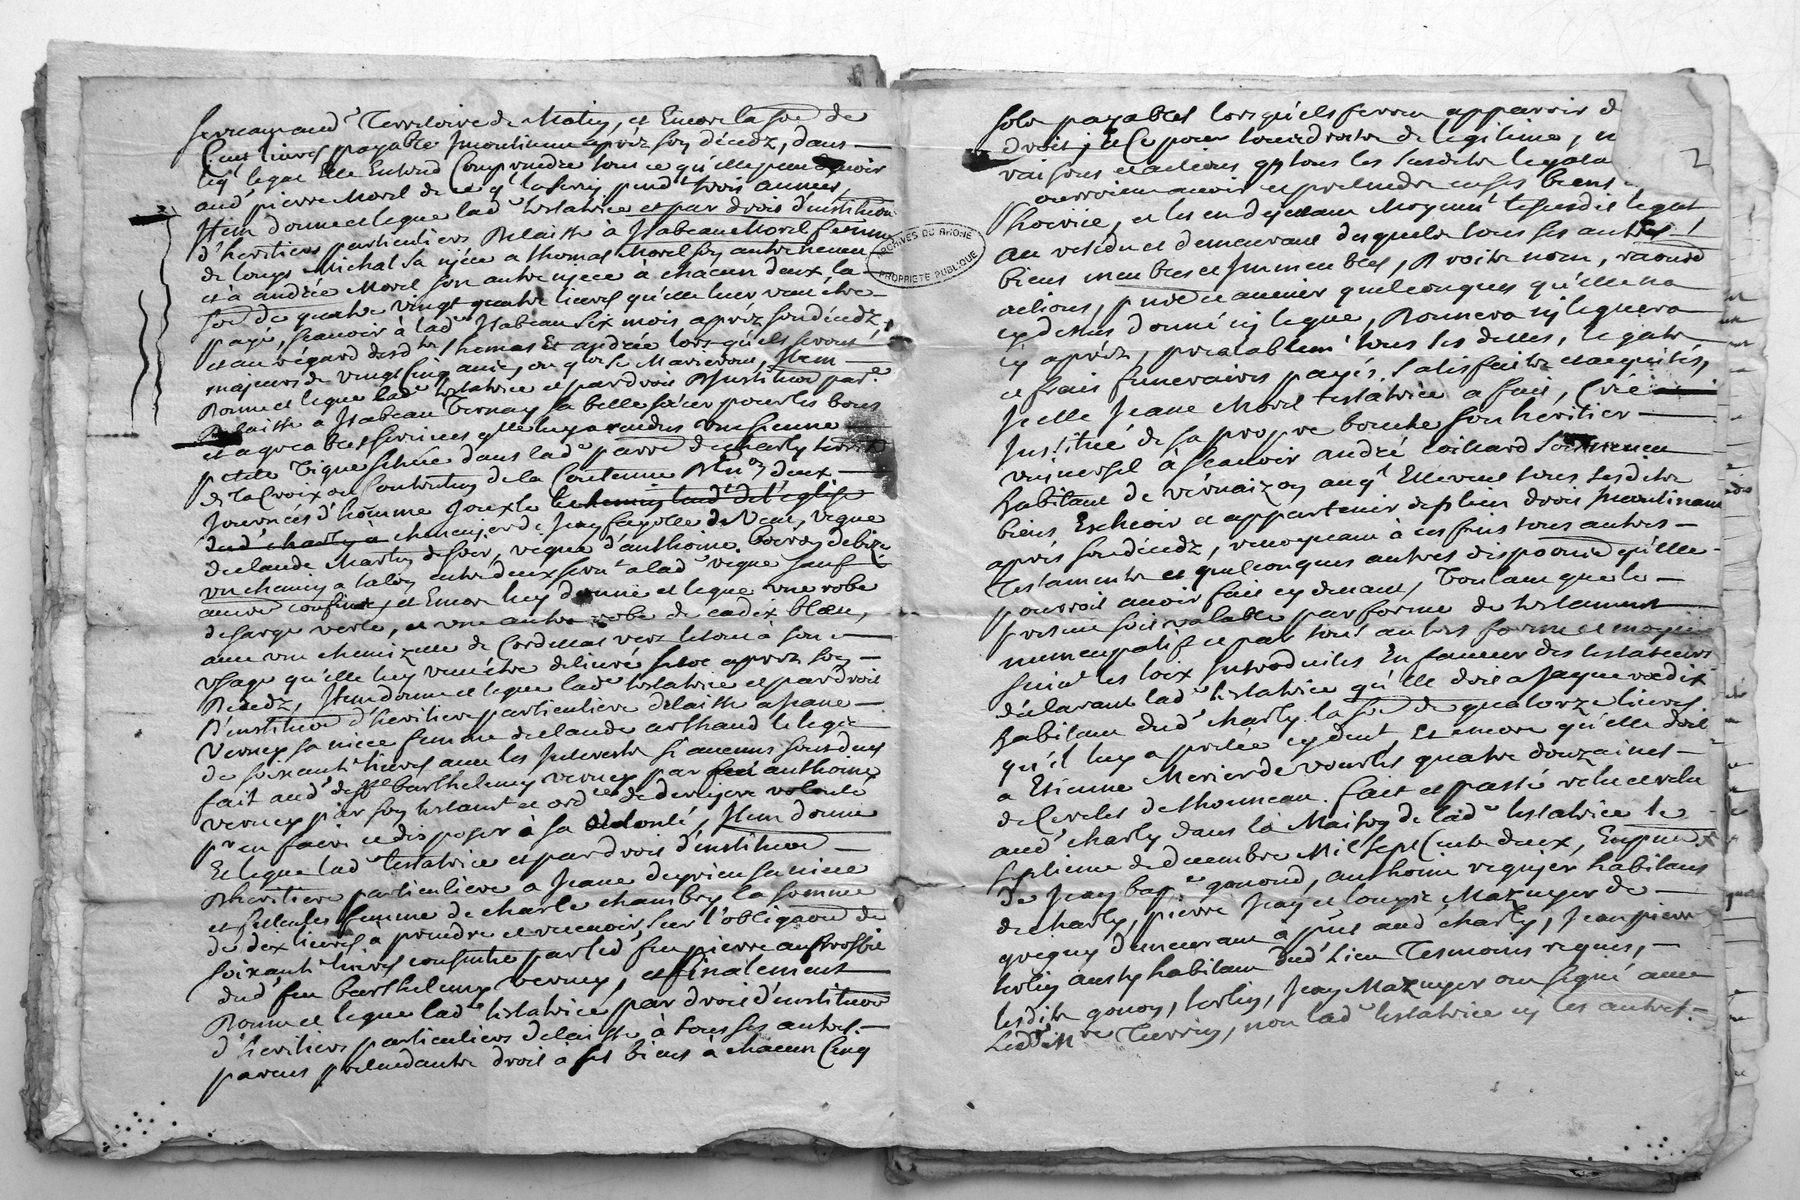 Territoire de Matin, et Encor la so.e de
Cent livres payable Incontinant apréz son décedz, dans
leql legat Elle Entend Comprendre tout ce qu'elle peut devoir
aud.t pierre Morel de pend.t trois années,
Item donne et legue lad.e testatrice et par droit d'institution
d'heritiers particuliers Delaisse a Isabeau Morel femme
de Louys Michal sa niéce a thomas Morel son autre neveu
et à andrée Morel son autre niece a chacun deux la
so.e de quatre vingt quatre livres qu'elle leur veut être
payé, sçavoir à lad.e Isabeau six mois apréz son décedz,
et au regard desd.ts thomas Et andrée lors qu'ils seront
majeurs de vingt Cinq ans, ou qu'ils se Marieront, Item
Donne et legue lad.e testatrice et par droit D'Institution par.re
Delaisse a Isabeau Vernay sa belle sœur pour les bons
et agreables services qu'elle luy a rendus une sienne
petite vigne située dans lad.e parroisse de charly territoire
de la Croix ou Contentin de la Contenue D'Environ deux
Journées d'homme Jouxte le chemin tend.t de l'eglise
dud.t charly à chemin de Jean fayolle de Vent, vigne
de claude Martin de soir, vigne d'anthoine de bize
un chemin a talon entre deux servant a lad.e vigne sauf
autres confins, et Encor luy donne et legue une robe
de sarge verte, et une autre robe de cadix bleu,
avec une chemizette de Cordillat verz le tout à son
usage qu'elle luy veut être delivré sitot apréz son
Décedz, Item donne et legue lad.e testatrice et par droit
D'institution d'heritiere particuliere delaisse a Jeane
Verney sa niéce femme de claude arthaud le legat
de soixante livres avec les Interests si aucuns sont deus
fait aud.t deff.t barthelemy verney par feu anthoine
verney par son testam.t et ord.ce de derniere volonté
p.r en faire et disposer à sa volonté, Item donne
Et legue lad.e testatrice et par droit d'institution
D'heritiere particuliere a Jeane sa niéce
et femme de charle chambry la somme
de dix livres à prendre et recevoir sur l'obligaon de
soixante livres consentie par led.t feu pierre au proffit
dud.t feu barthelemy verney, et finalement
Donne et legue lad.e testatrice par droit d'institution
d'heritiers particuliers delaisse à tous ses autres
parens pretendants droit a ses biens à chacun Cinq
sols payables lorsqu'ils feront apparoir d
droit, et Ce pour tous droits de legitime,
raisons et actions que tous les susdits legata
pourroient avoir et pretendre en ses biens
hoirie, et les en déjettant moyenn.t le susdit legat
Au residu et demeurant desquels tous ses autres
biens meubles et Immeubles, Droits noms, raisons
actions, present et avenir quelconques qu'elle n'a
cy dessus donné ny legué, Donnera ny leguera
cy apréz, prealablem.t tous ses dettes, legats
et frais funeraires payés, satisfaits et acquités,
Icelle Jeane Morel testatrice a fait, Créé
Institué de sa propre bouche son heritier
universel à sçavoir andré Coihard son neveu
habitant de vernaizon auq.l Elle veut tous sesdits
biens Escheoir et appartenir de plein droit Incontinant
aprés son décedz, revoquant à ces fins tous autres
Testaments et quelconques autres dispositions qu'elle
pourroit avoir fait cy devant, Voulant que le
present soit valable par forme de testament
nuncupatif et par tout autres forme et moyens
suiv.t les loix Introduites En faveur des testateurs
déclarant lad.e testatrice qu'elle doit a Jaque
habitant dud.t charly la so.e de quatorze livres
qu'il luy a pretée cy dev.t Et encore qu'elle doit
a Etienne Mercier de vourles quatre douzaines
de Cercles de thonneau. fait et passé releu et
aud.t charly dans la Maison de lad.e testatrice le
septieme de decembre Mil sept Cents deux, En presence
de Jean bap.te gonond, anthoine vignier habitans
de charly, pierre Jean et Louys Maznyer de
demeurant à aud.t charly, Jean pierre
habitant dud.t Lieu Tesmoins requis,
lesdits gonon, Jean Maznyer ont signé avec
led.t M.re Terrin, non lad.e testatrice ny les autres.
2
ARCHIVES DU RHONE
PROPRIETE PUBLIQUE